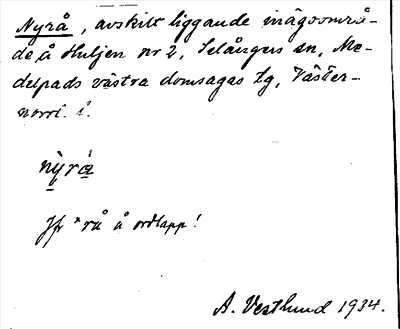 Nyrå, avskilt liggande inägoområ-
de å Huljen nr 2, Selångers sn, Me-
delpads västra domsagas tg, Väster-
norrl. l.
nỳrá
Jfr *rå å ordlapp!
A. Vestlund 1934.